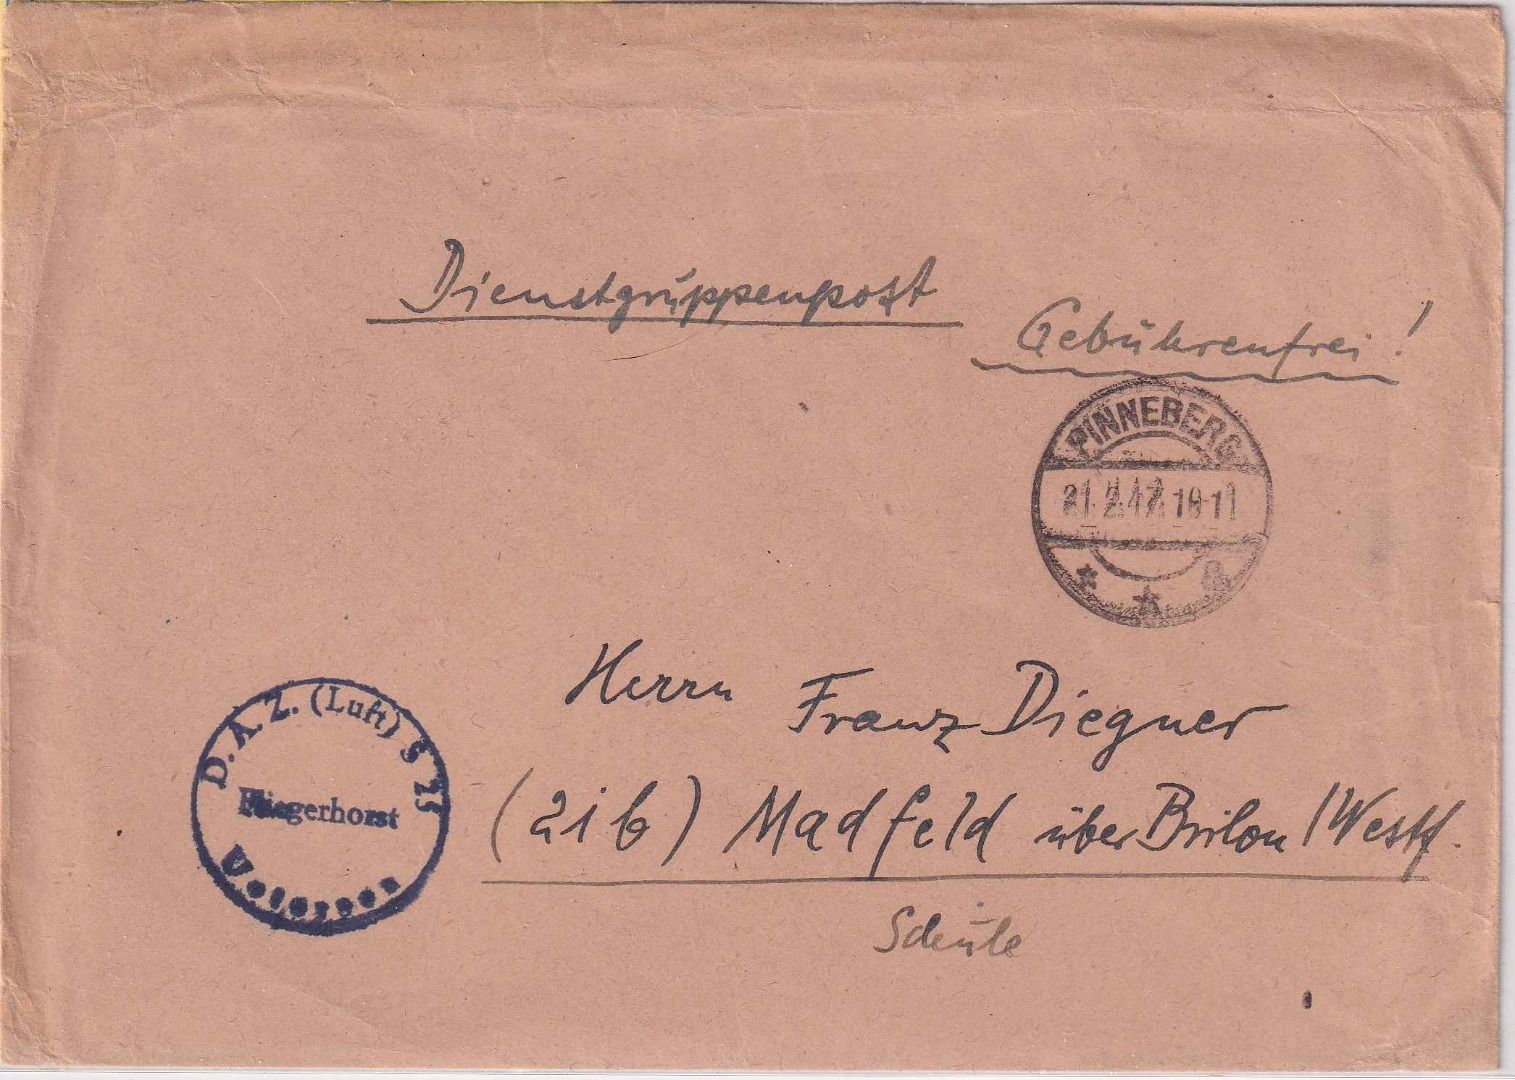 Dienstgruppenpost
Gebührenfrei!
PINNEBERG
21.2.47.10-11
* * a
Herrn Franz Diegner
(21b) Madfeld über Brilon /Westf.
Schule
D.A.Z. (Luft) S 25
Fliegerhorst
Uetersen